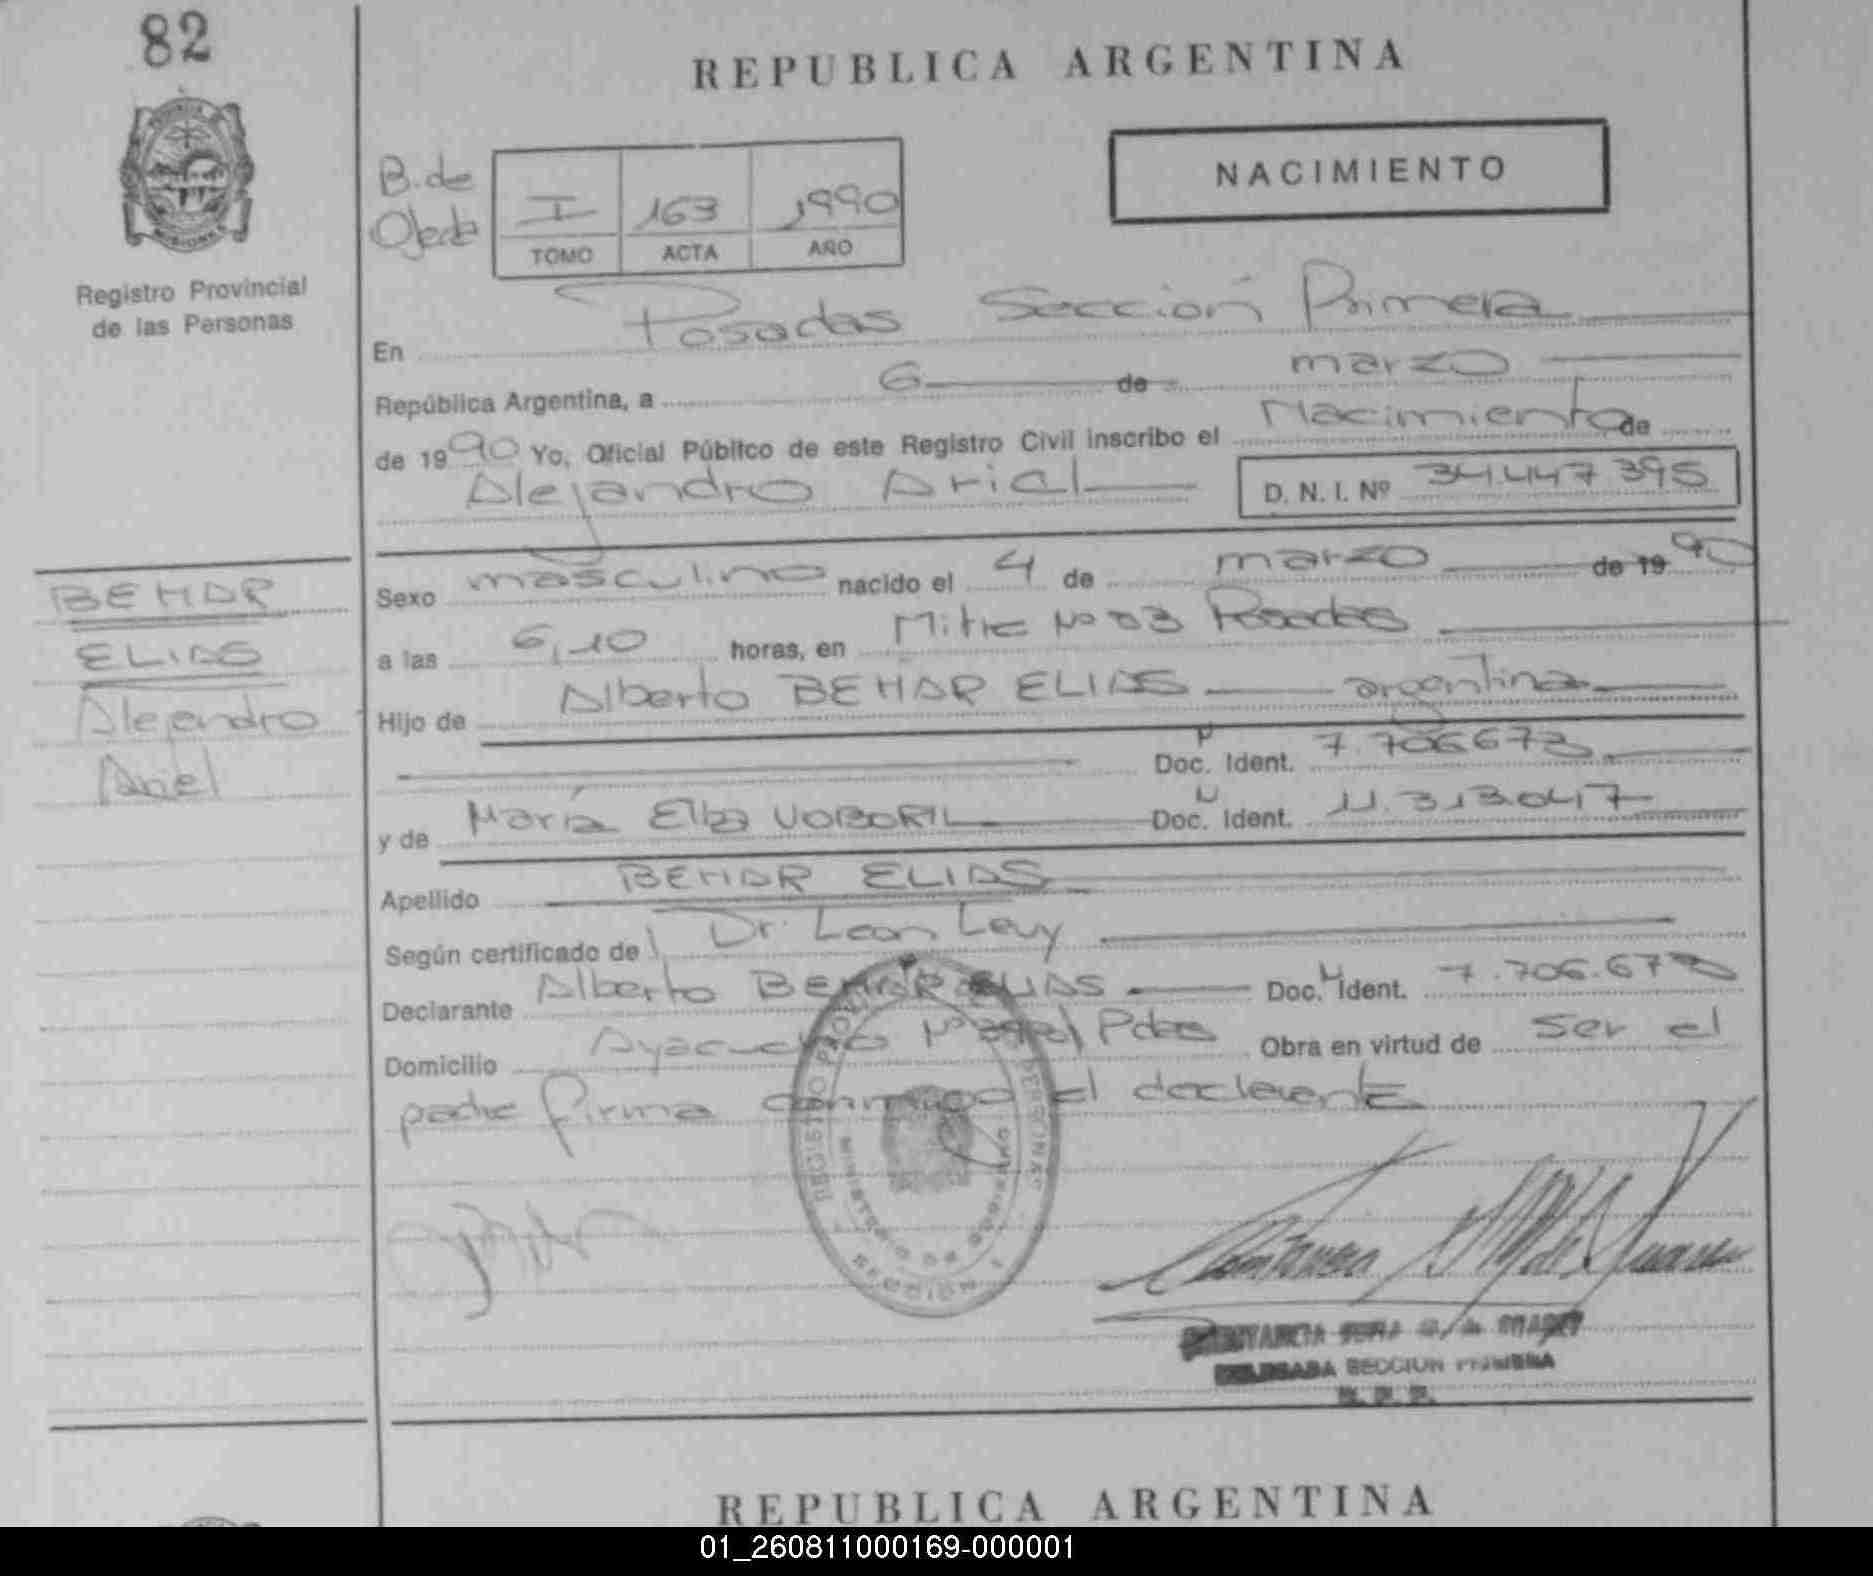 82
REPUBLICA ARGENTINA
NACIMIENTO
B. de
Ojeda
I 163 1990
TOMO ACTA AÑO
Registro Provincial
de las Personas
En Posadas Sección Primera
República Argentina, a 6 de marzo
de 1990 Yo, Oficial Público de este Registro Civil inscribo el Nacimiento de
Alejandro Ariel D. N. I. Nº 34.447.395
BEHAR
ELIAS
Alejandro
Ariel
Sexo masculino nacido el 4 de marzo de 1990
a las 6,10 horas, en Mitre Nº 03 Posadas
Hijo de Alberto BEHAR ELIAS argentina
Doc. Ident. 7.706673
y de María Elba VOBORIL Doc. Ident. 11.313.047
Apellido BEHAR ELIAS
Según certificado de Dr. Leon Levy
Declarante Alberto BEHAR ELIAS Doc. Ident. 7.706.673
Domicilio Ayacucho Nº Pdas Obra en virtud de ser el
padre firma conmigo el declarante
REGISTRO
MISIONES
SECCION PRIMERA
REPUBLICA ARGENTINA
01_260811000169-000001